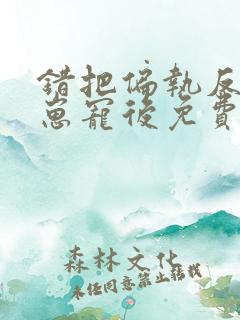 錯把偏執反
崽寵後免費
森林文化
未經同意禁止轉載